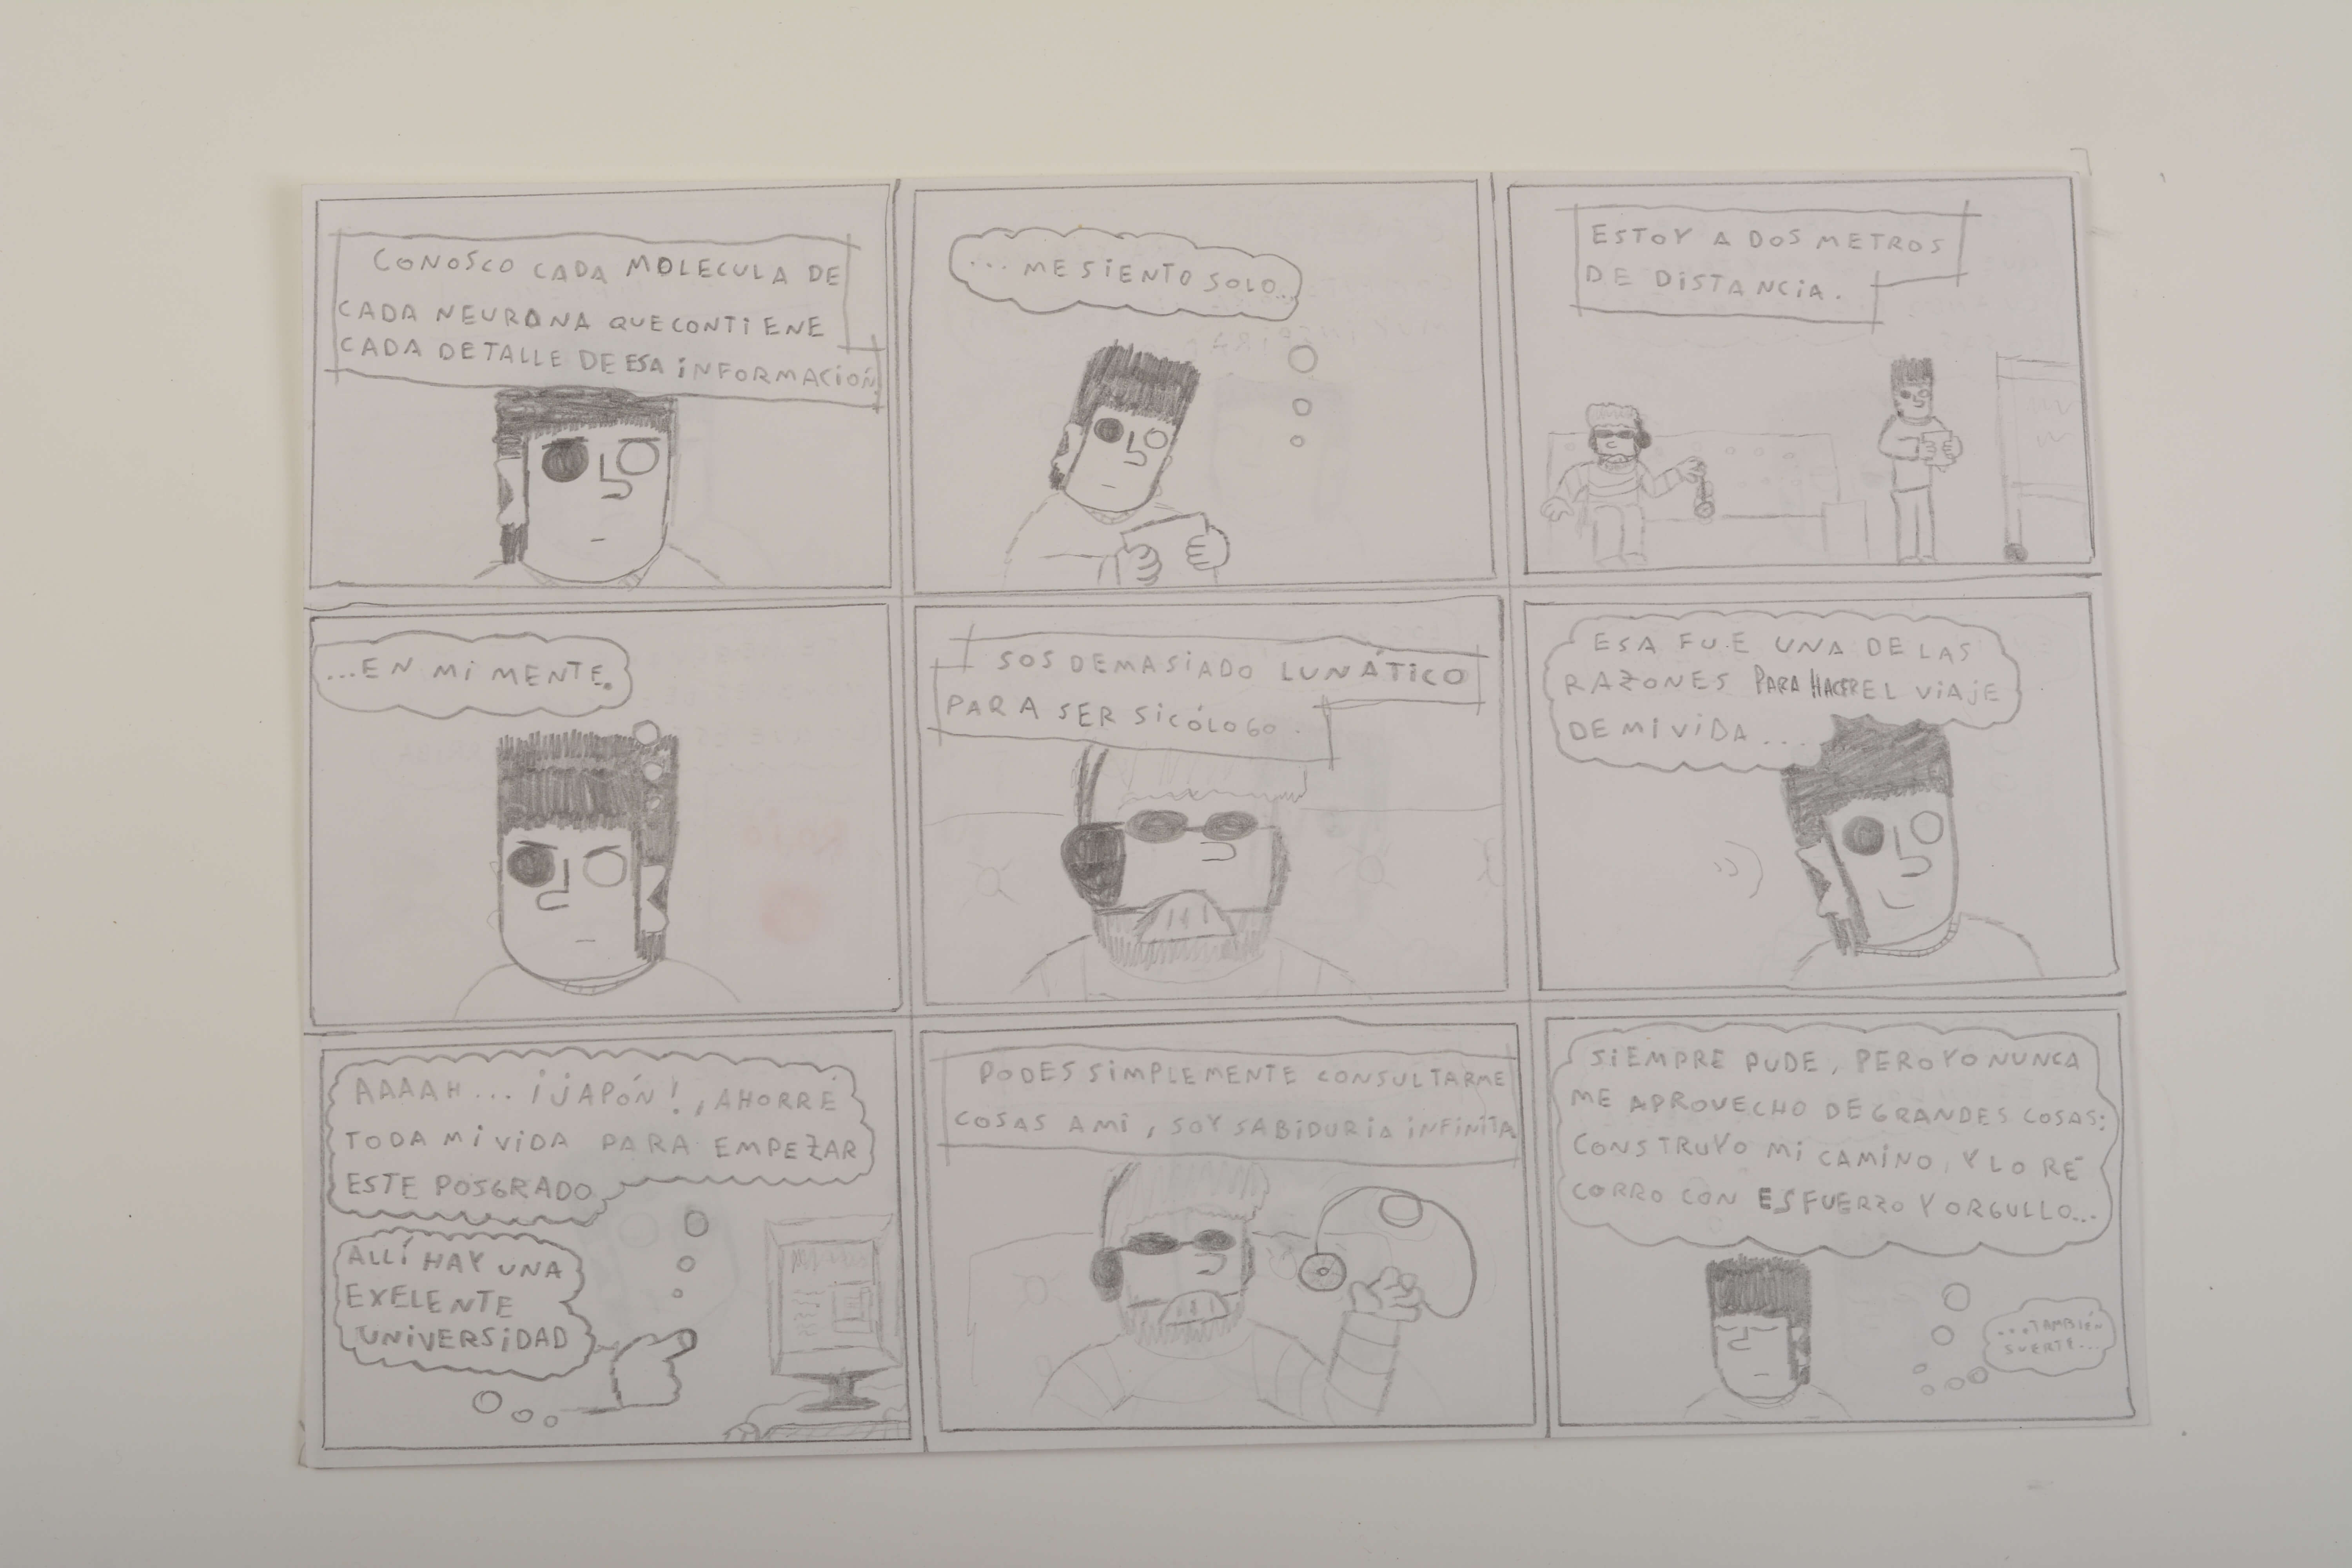 CONOSCO CADA MOLECULA DE
CADA NEURONA QUE CONTIENE
CADA DETALLE DE ESA INFORMACIÓN
... ME SIENTO SOLO...
ESTOY A DOS METROS
DE DISTANCIA.
...EN MI MENTE.
SOS DEMASIADO LUNÁTICO
PARA SER SICÓLOGO.
ESA FUE UNA DE LAS
RAZONES PARA HACER EL VIAJE
DE MI VIDA...
AAAAH... ¡JAPÓN!, AHORRÉ
TODA MI VIDA PARA EMPEZAR
ESTE POSGRADO
ALLÍ HAY UNA
EXELENTE
UNIVERSIDAD
PODES SIMPLEMENTE CONSULTARME
COSAS A MÍ, SOY SABIDURIA INFINITA
SIEMPRE PUDE, PERO YO NUNCA
ME APROVECHO DE GRANDES COSAS:
CONSTRUYO MI CAMINO, Y LO RE
CORRO CON ESFUERZO Y ORGULLO...
...TAMBIEN
SUERTE...